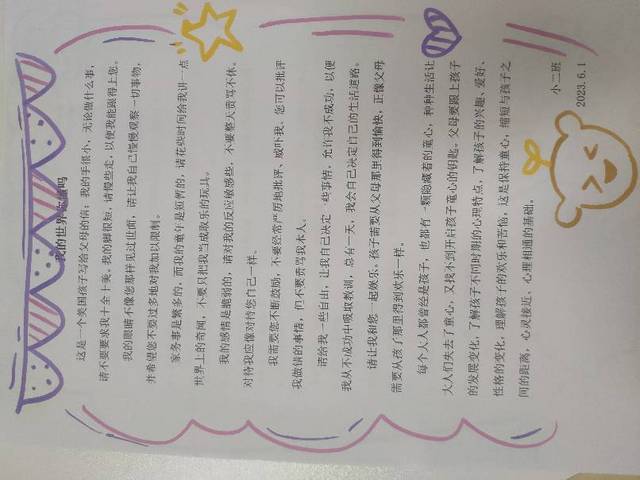 我的世界你懂吗
这是一个美国孩子写给父母的信：我的手很小，无论做什么事，
请不要要求我十全十美。我的脚很短，请慢些走，以便我能跟得上您。
我的眼睛不像您那样见过世面，请让我自己慢慢观察一切事物，
并希望您不要过多地对我加以限制。
家务事是繁多的，而我的童年是短暂的，请花些时间给我讲一点
世界上的奇闻，不要只把我当成取乐的玩具。
我的感情是脆弱的，请对我的反应敏感些，不要整天责骂不休。
对待我应像对待您自己一样。
我需要您不断鼓励，不要经常严厉地批评、威吓我。您可以批评
我做错的事情，但不要责骂我本人。
请给我一些自由，让我自己决定一些事情，允许我不成功，以便
我从不成功中吸取教训，总有一天，我会自己决定自己的生活道路。
请让我和您一起娱乐。孩子需要从父母那里得到愉快，正像父母
需要从孩子那里得到欢乐一样。
每个大人都曾经是孩子，也都有一颗隐藏着的童心，种种生活让
大人们失去了童心，又找不到开启孩子童心的钥匙。父母要跟上孩子
的发展变化，了解孩子不同时期的心理特点，了解孩子的兴趣、爱好、
性格的变化，理解孩子的欢乐和苦恼，这是保持童心，缩短与孩子之
间的距离，心灵接近、心理相通的基础。
小二班
2023.6.1